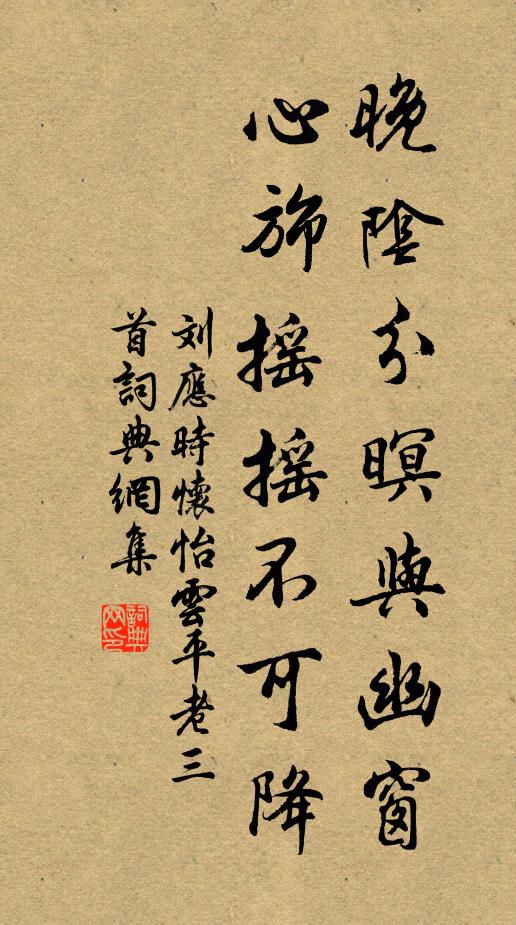 晚陰分暝與幽窗
心旆搖搖不可降
刘應時懷怡雲平老三
首詞典網集
詞典
网印